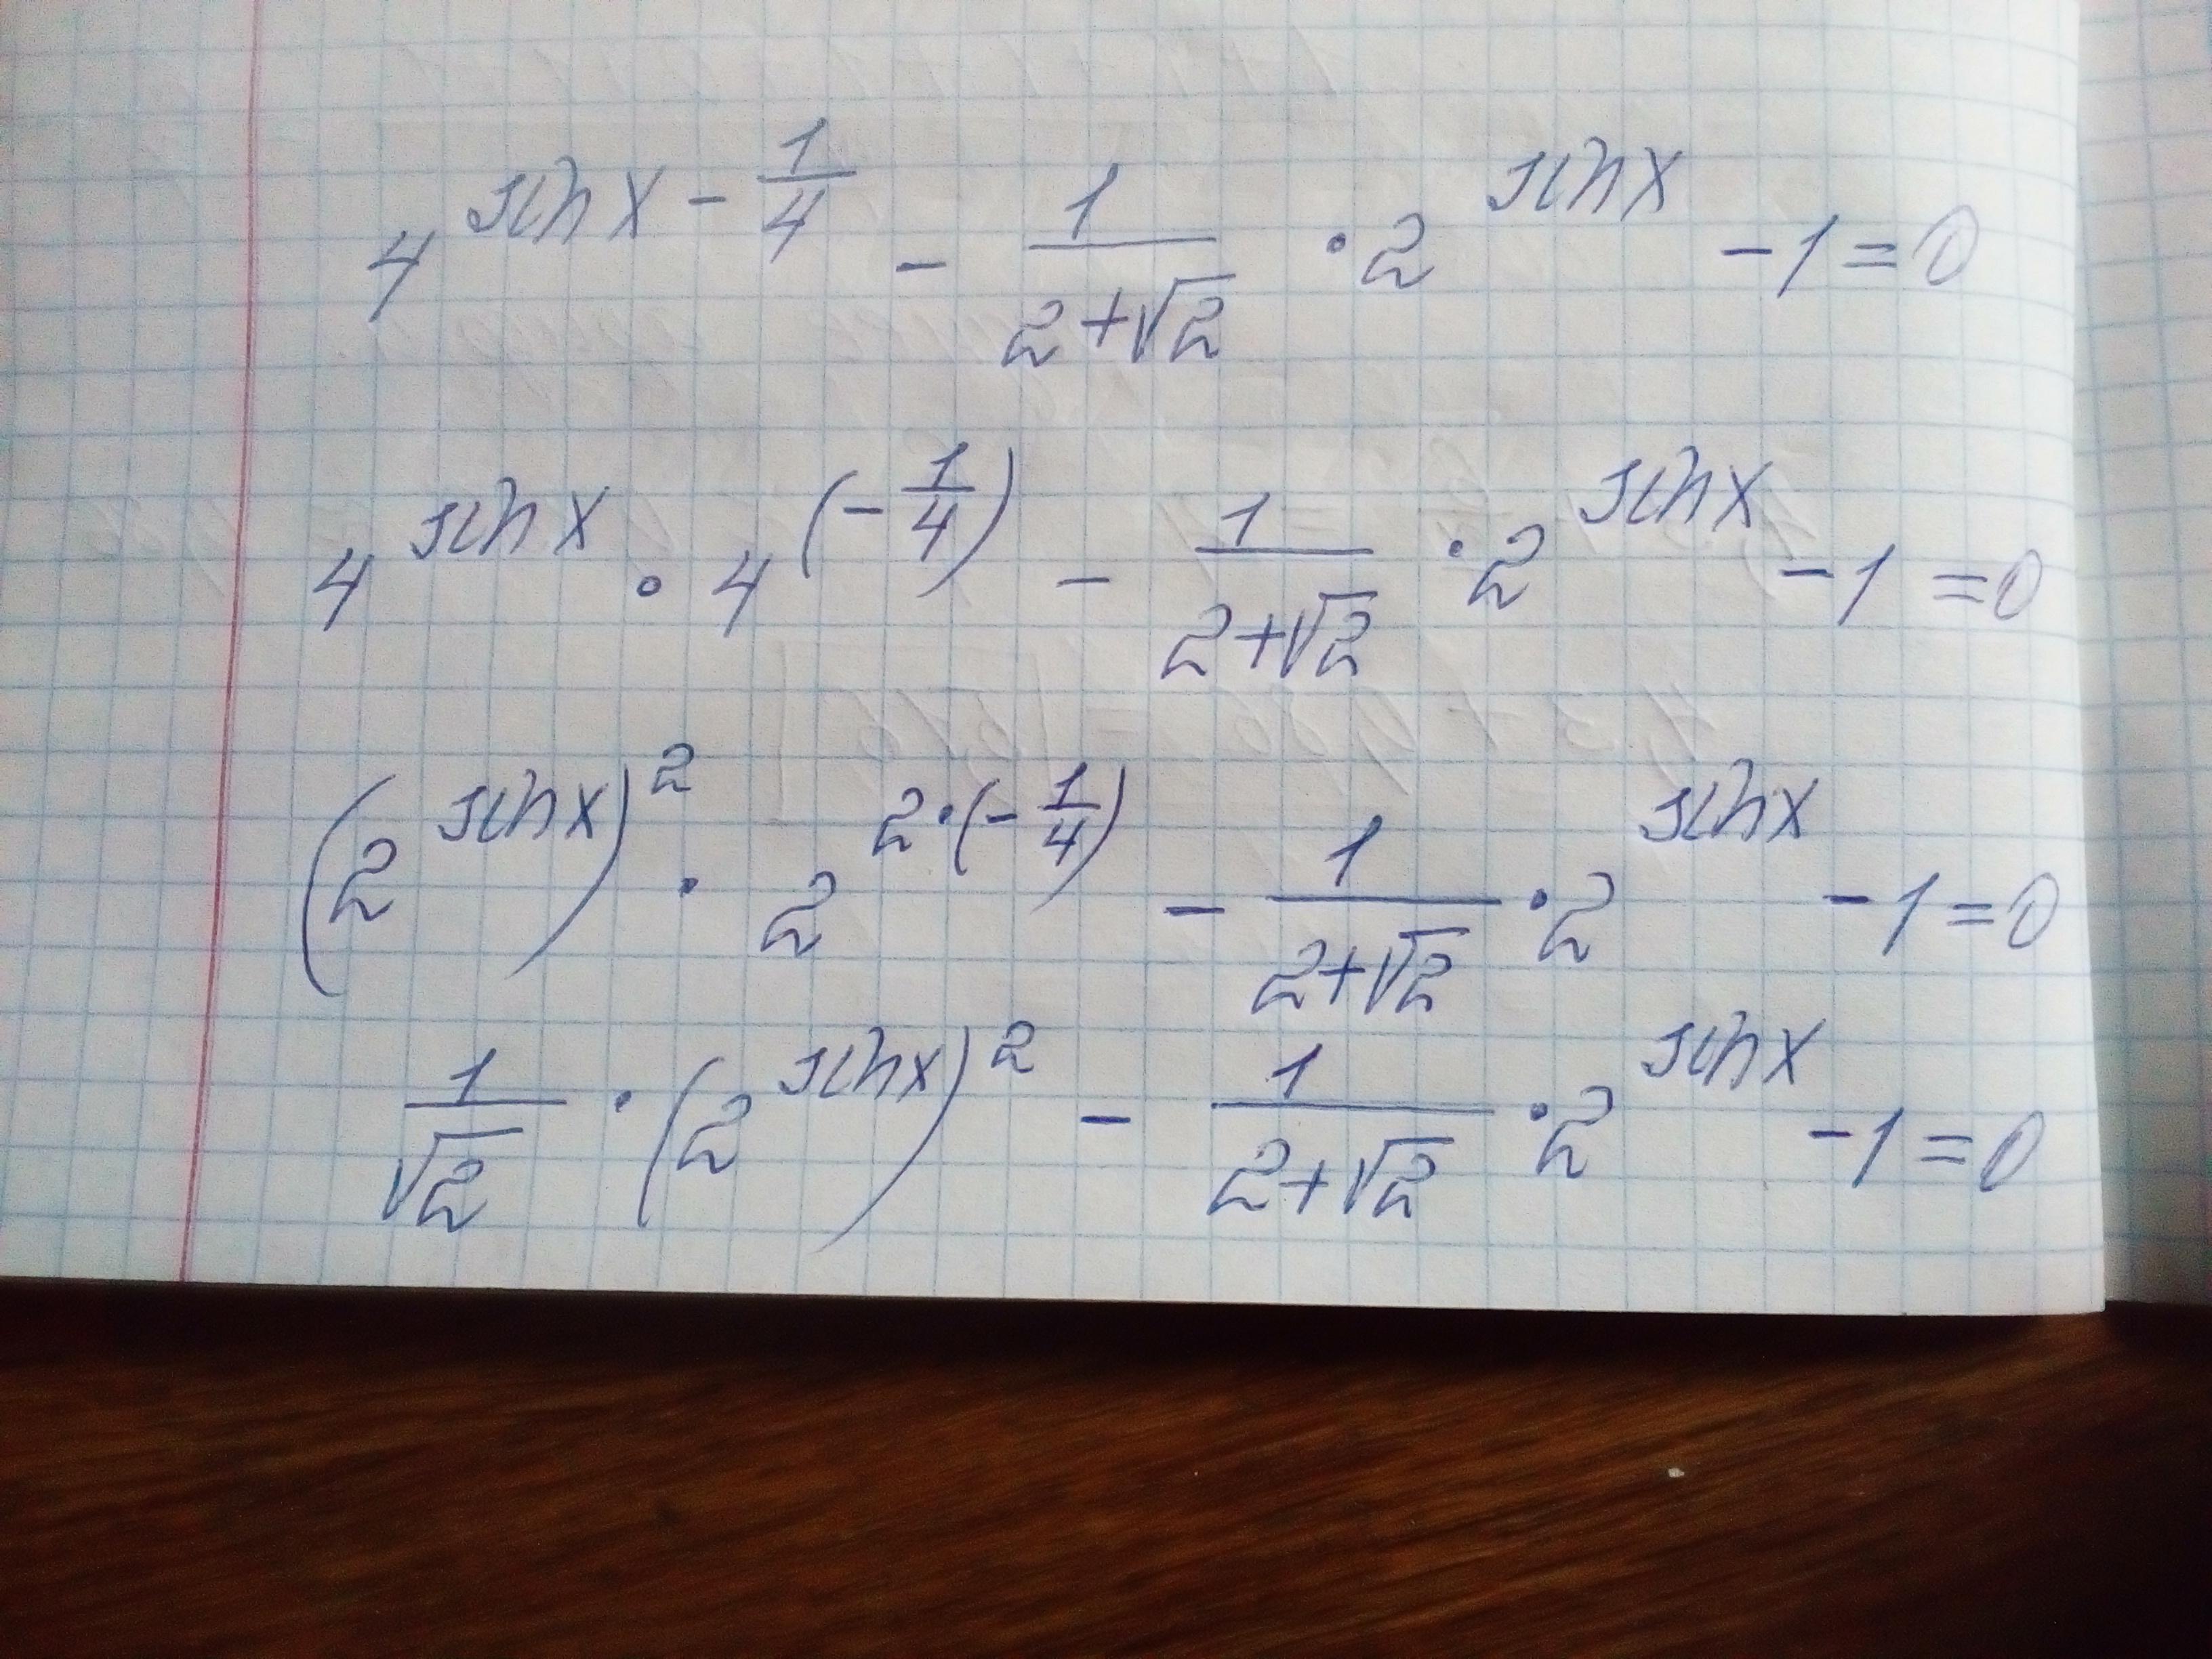 4^{sin x - \frac{1}{4}} - \frac{1}{2+\sqrt{2}} · 2^{sin x} - 1 = 0
4^{sin x} · 4^{(-\frac{1}{4})} - \frac{1}{2+\sqrt{2}} · 2^{sin x} - 1 = 0
(2^{sin x})^2 · 2^{2·(-\frac{1}{4})} - \frac{1}{2+\sqrt{2}} · 2^{sin x} - 1 = 0
\frac{1}{\sqrt{2}} · (2^{sin x})^2 - \frac{1}{2+\sqrt{2}} · 2^{sin x} - 1 = 0